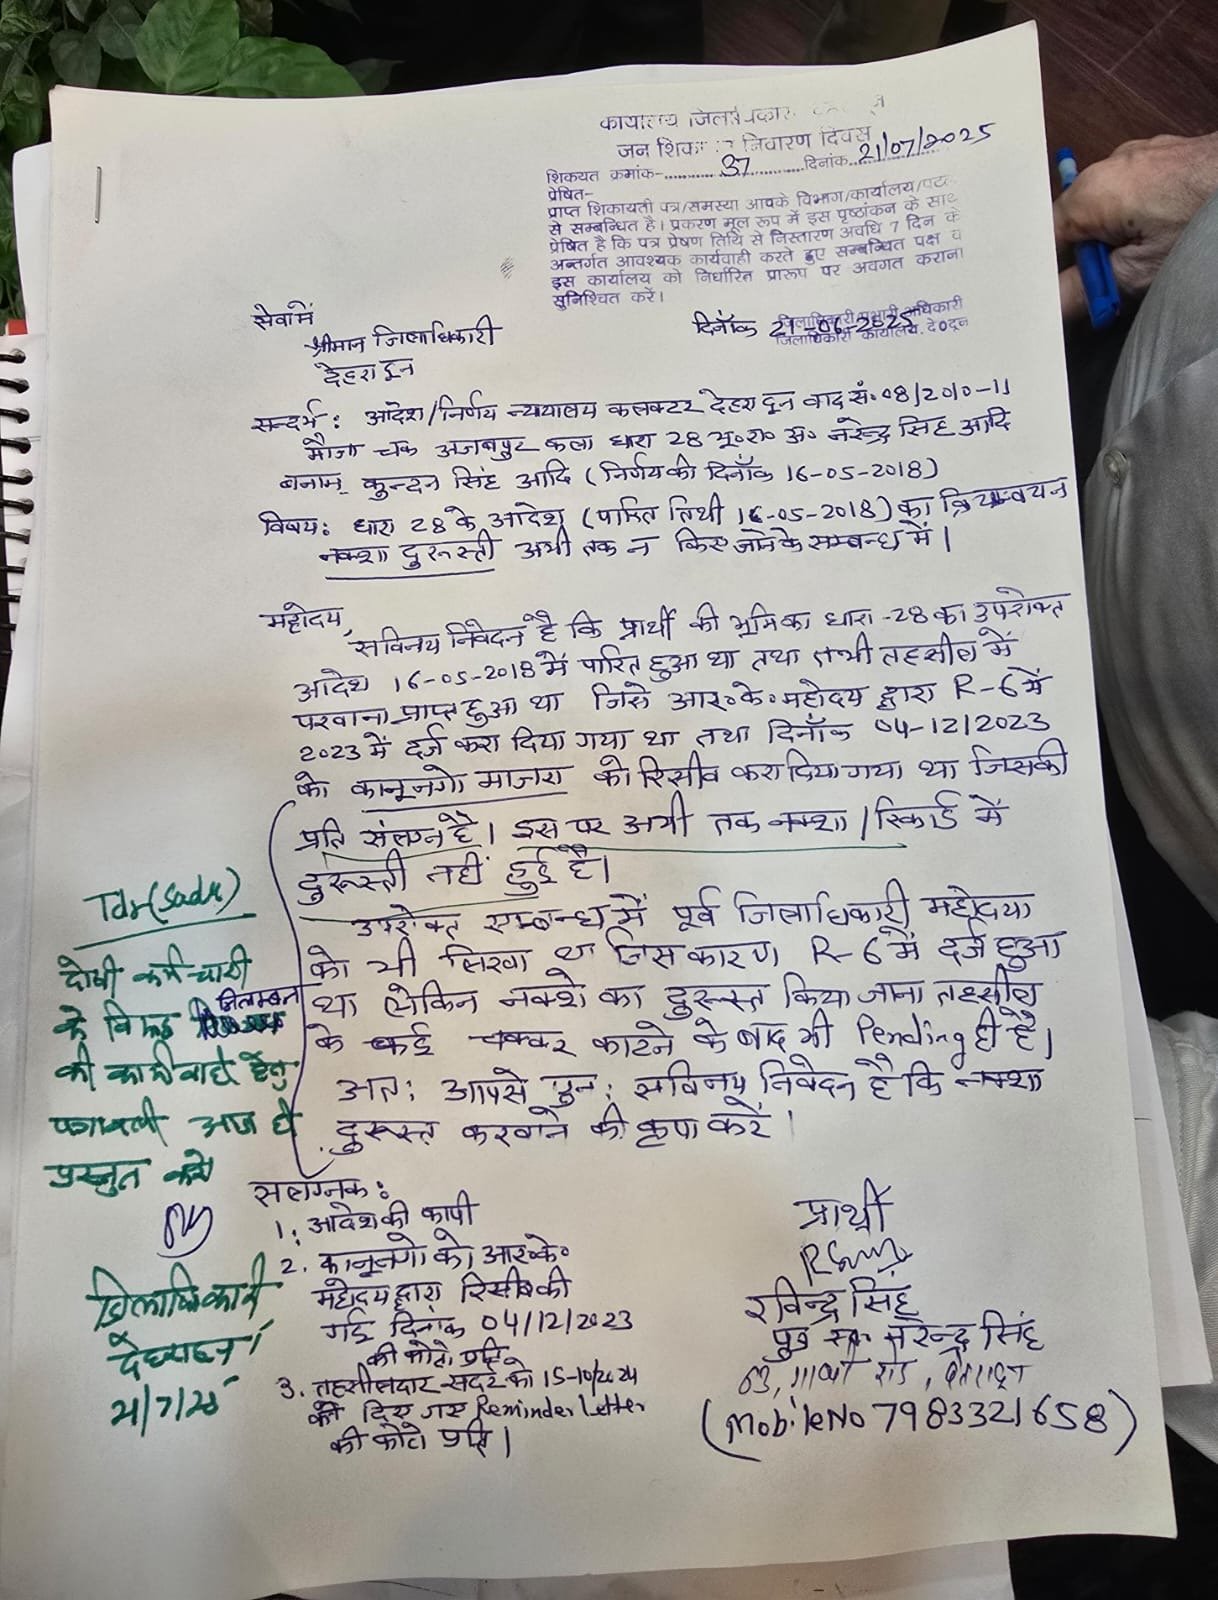 कार्यालय जिलाधिकारी
जन शिकायत निवारण दिवस
शिकयत क्रमांक-............37............दिनांक...21/07/2025
प्रेषित-
प्राप्त शिकायती पत्र/समस्या आपके विभाग/कार्यालय/पटल
से सम्बन्धित है। प्रकरण मूल रूप में इस पृष्ठांकन के साथ
प्रेषित है कि पत्र प्रेषण तिथि से निस्तारण अवधि 7 दिन के
अन्तर्गत आवश्यक कार्यवाही करते हुए सम्बन्धित पक्ष व
इस कार्यालय को निर्धारित प्रारूप पर अवगत कराना
सुनिश्चित करें।
जिलाधिकारी/प्रभारी अधिकारी
जिलाधिकारी कार्यालय, दे०दून
सेवामें
दिनाँक 21-06-2025
श्रीमान जिलाधिकारी
देहरादून
सन्दर्भ: आदेश/निर्णय न्यायालय कलक्टर देहरादून वाद सं. 08/2010-11
मौजा चक अजबपुर कला धारा 28 भू०रा० अ० नरेन्द्र सिंह आदि
बनाम् कुन्दन सिंह आदि (निर्णय की दिनाँक 16-05-2018)
विषय: धारा 28 के आदेश (पारित तिथी 16-05-2018) का क्रियान्वयन
नक्शा दुरूस्ती अभी तक न किए जाने के सम्बन्ध में।
महोदय,
सविनय निवेदन है कि प्रार्थी की भूमि का धारा-28 का उपरोक्त
आदेश 16-05-2018 में पारित हुआ था तथा तभी तहसील में
परवाना प्राप्त हुआ था जिसे आर०के० महोदय द्वारा R-6 में
2023 में दर्ज करा दिया गया था तथा दिनाँक 04-12/2023
को कानूनगो माजरा को रिसीव करा दिया गया था जिसकी
प्रति संलग्न है। इस पर अभी तक नक्शा/रिकार्ड में
दुरूस्ती नहीं हुई है।
उपरोक्त सम्बन्ध में पूर्व जिलाधिकारी महोदया
को भी लिखा था जिस कारण R-6 में दर्ज हुआ
था लेकिन नक्शे का दुरूस्त किया जाना तहसील
के कई चक्कर काटने के बाद भी Pending ही है।
अत: आपसे पुन: सविनय निवेदन है कि नक्शा
दुरूस्त करवाने की कृपा करें।
Tdr (Sadr)
दोषी कर्मचारी
के विरूद्ध निलम्बन
की कार्यवाही हेतु
पत्रावली आज ही
प्रस्तुत करें
जिलाधिकारी
देहरादून।
21/7/25
संलग्नक:
1. आदेश की कापी
2. कानूनगो को आर०के०
महोदय द्वारा रिसीव की
गई दिनांक 04/12/2023
की फोटो प्रति
3. तहसीलदार सदर को 15-10/2024
को दिए गए Reminder Letter
की फोटो प्रति।
प्रार्थी
रविन्द्र सिंह
पुत्र स्व० नरेन्द्र सिंह
63, रोड, देहरादून
(Mobile No 7983321658)